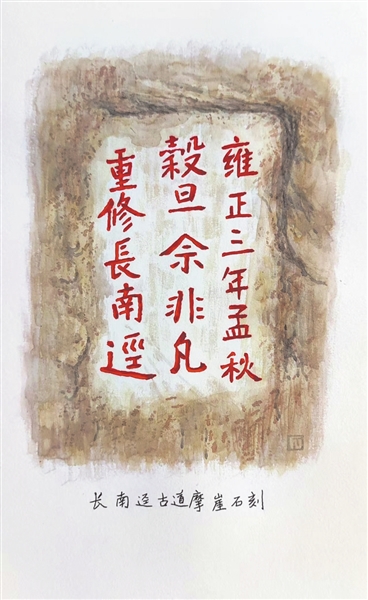 雍正三年孟秋
穀旦余非凡
重修長南逕
长南迳古道摩崖石刻